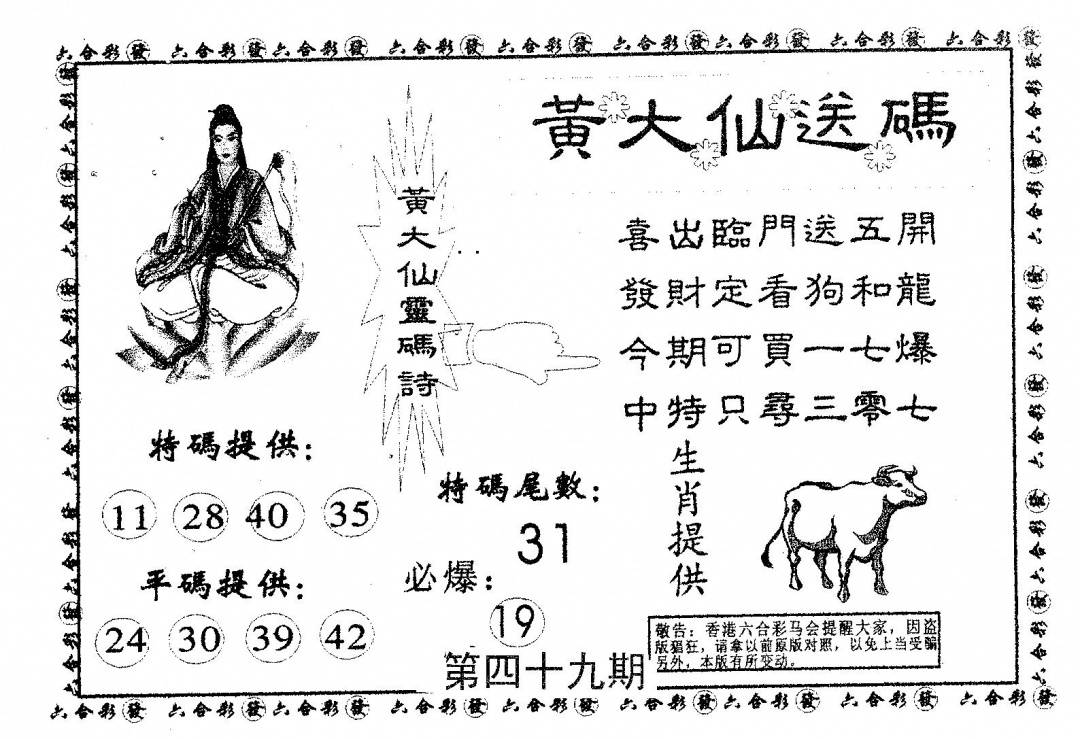 六合彩發 六合彩發六合彩發 六合彩發 六合彩發 六合彩發六合彩發 六合彩發 六合彩發
黃大仙送碼
黃大仙靈碼詩
喜出臨門送五開
發財定看狗和龍
今期可買一七爆
中特只尋三零七
特碼提供：
11 28 40 35
平碼提供：
24 30 39 42
特碼尾數：
31
必爆：
19
生肖提供
敬告：香港六合彩马会提醒大家，因盗
版猖狂，请拿以前原版对照，以免上当受骗
另外，本版有所变动。
第四十九期
六合彩發 六合彩發六合彩發 六合彩發 六合彩發 六合彩發六合彩發 六合彩發 六合彩發